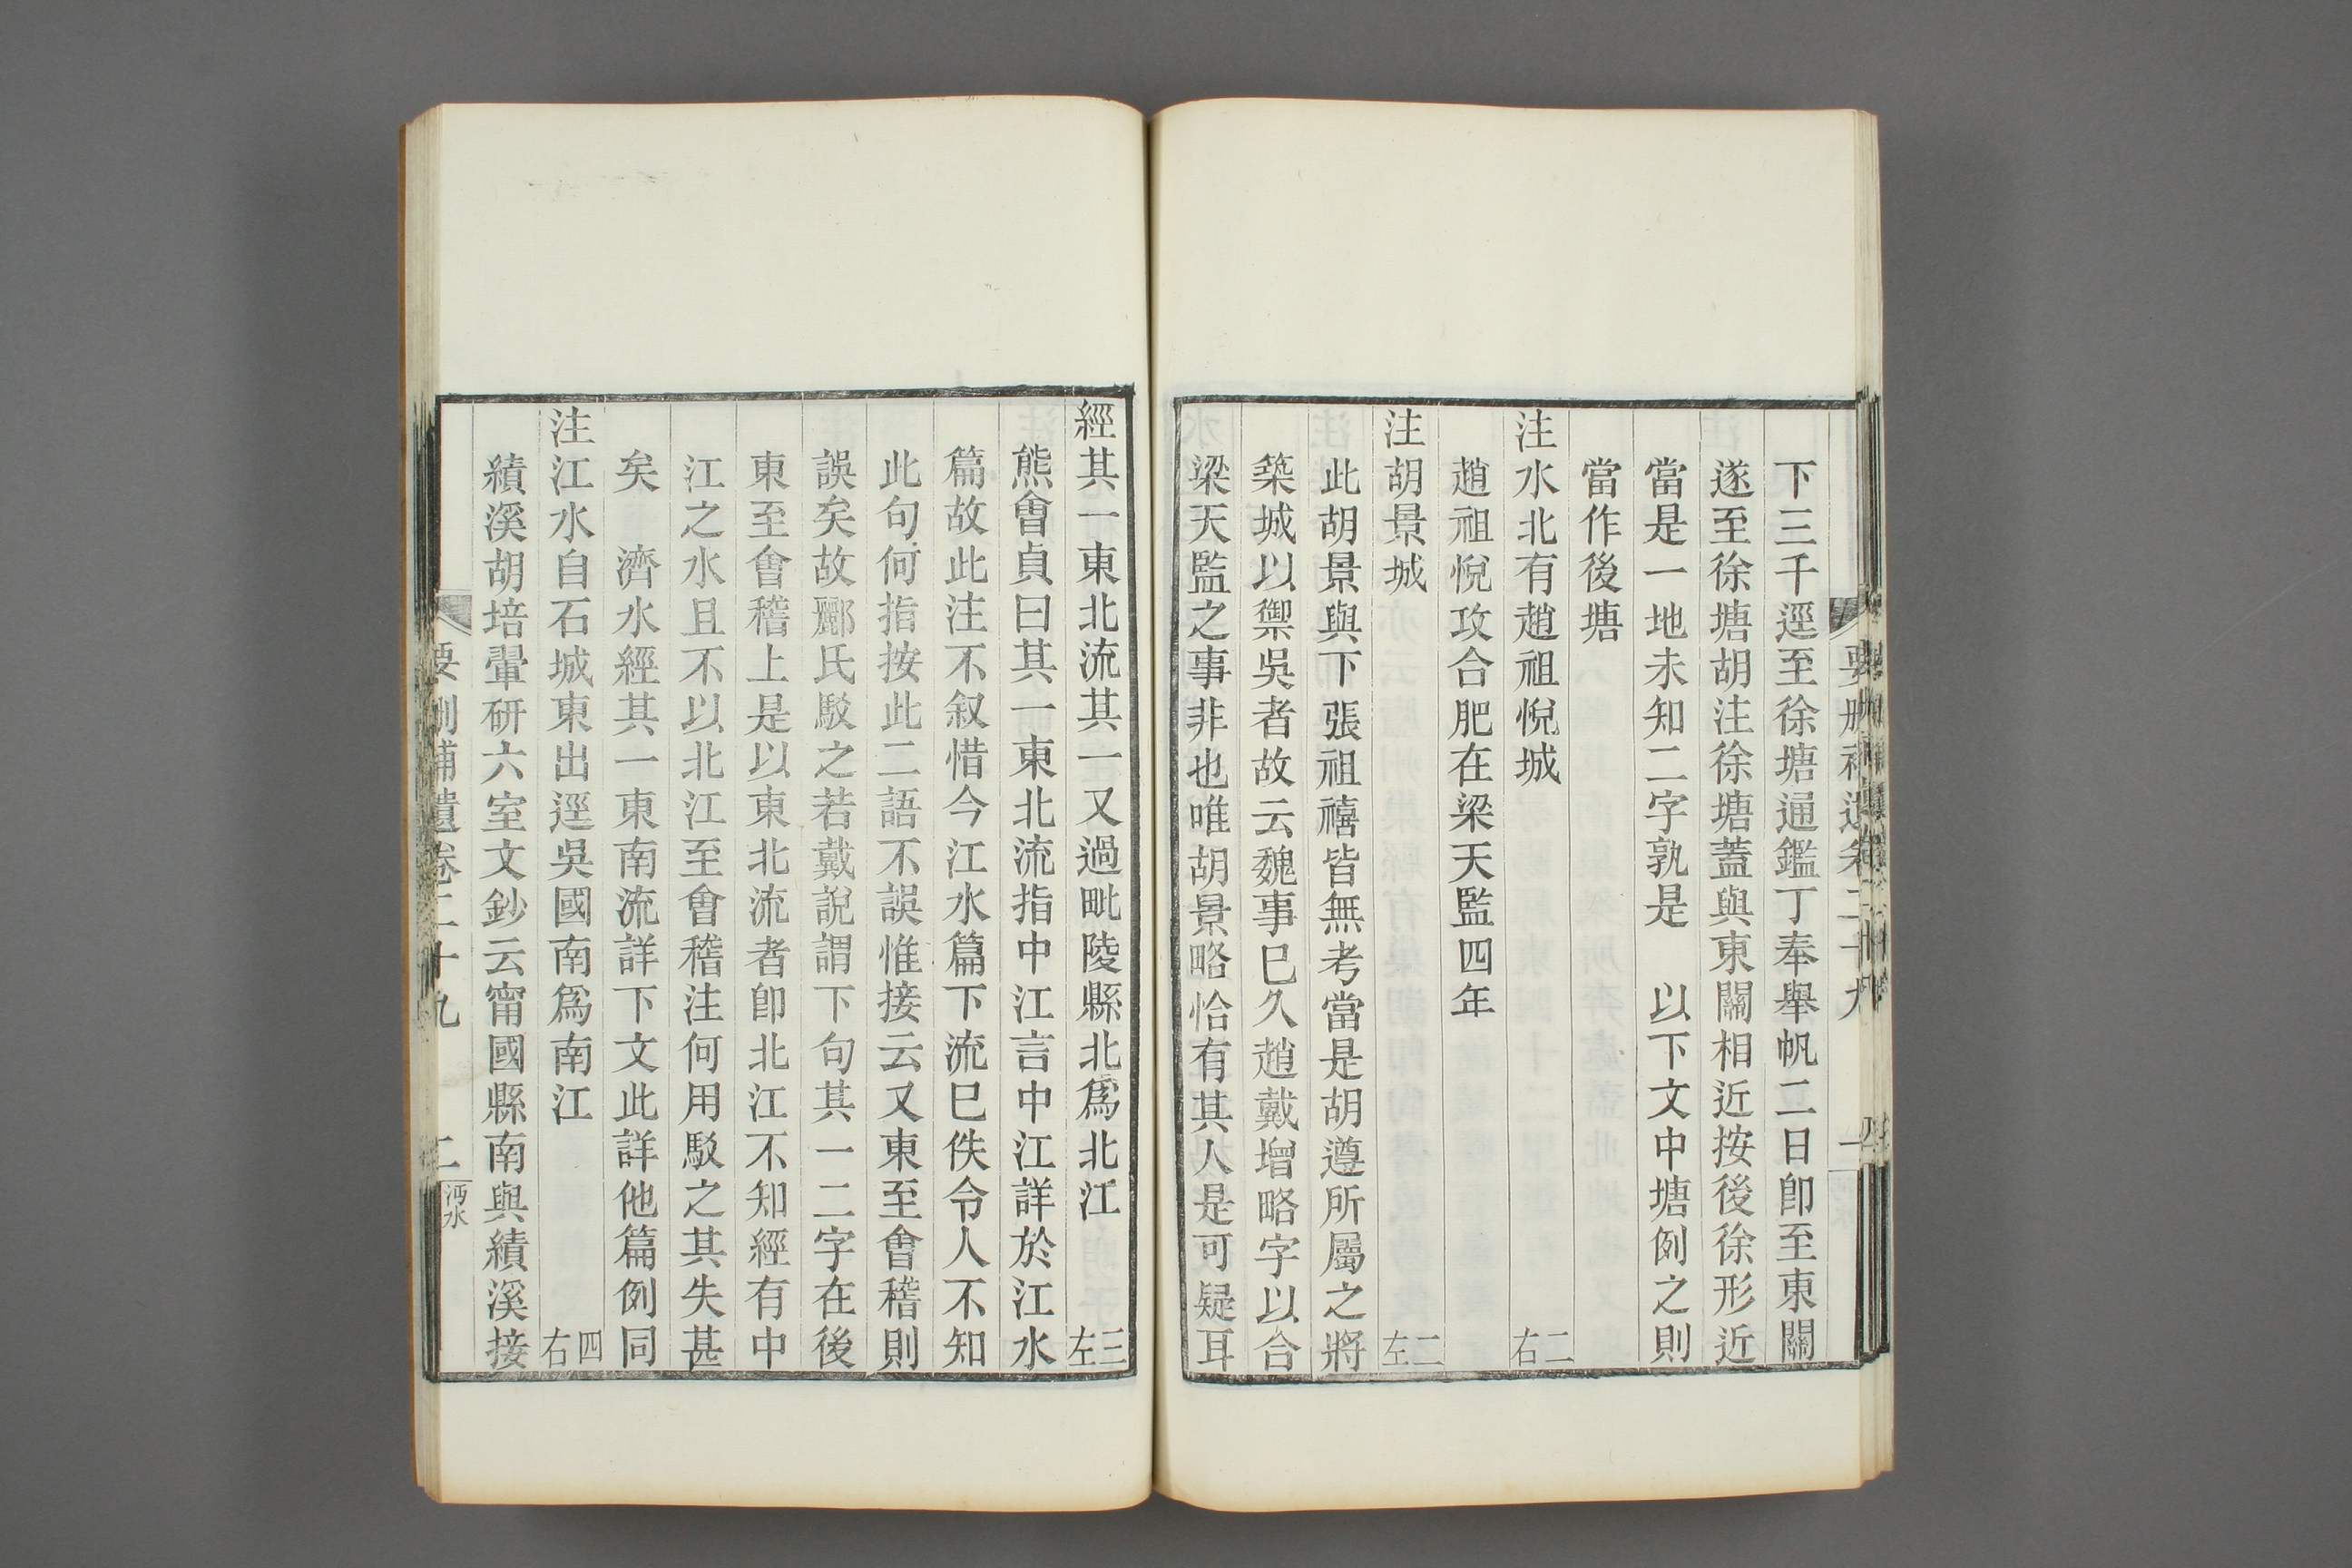 下三千逕至徐塘通鑑丁奉舉帆二日卽至東關
遂至徐塘胡注徐塘蓋與東關相近按後徐形近
當是一地未知二字孰是　以下文中塘例之則
當作後塘
注水北有趙祖悅城　二右
趙祖悅攻合肥在梁天監四年
注胡景城　二左
此胡景與下張祖禧皆無考當是胡遵所屬之將
築城以禦吳者故云魏事巳久趙戴增略字以合
梁天監之事非也唯胡景略恰有其人是可疑耳
經其一東北流其一又過毗陵縣北爲北江　三左
熊會貞曰其一東北流指中江言中江詳於江水
篇故此注不叙惜今江水篇下流巳佚令人不知
此句何指按此二語不誤惟接云又東至會稽則
誤矣故酈氏駁之若戴說謂下句其一二字在後
東至會稽上是以東北流者卽北江不知經有中
江之水且不以北江至會稽注何用駁之其失甚
矣　濟水經其一東南流詳下文此詳他篇例同
注江水自石城東出逕吳國南爲南江　四右
績溪胡培翬研六室文鈔云甯國縣南與績溪接
要刪補遺卷二十九　二　沔水